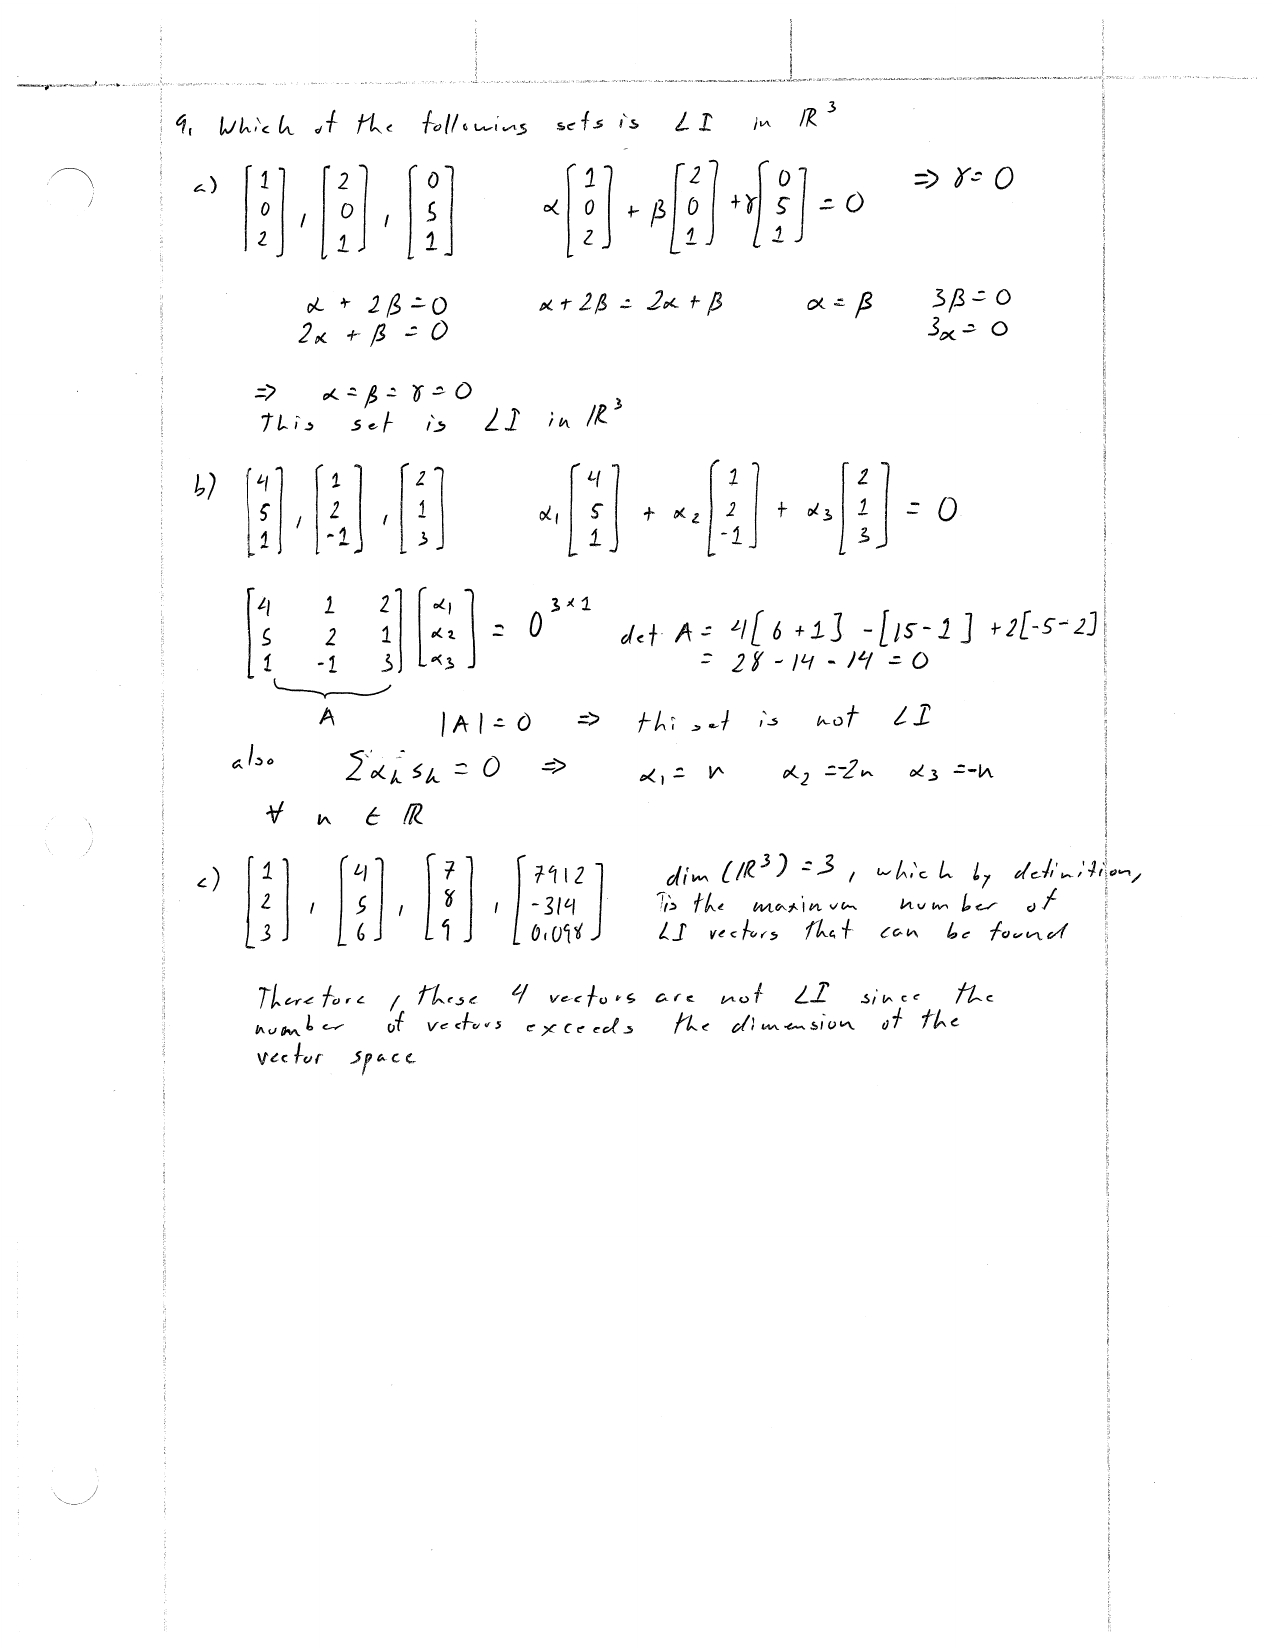 9. Which of the following sets is LI in ℝ³
a) [1 0 2], [2 0 1], [0 5 1] α[1 0 2] + β[2 0 1] + γ[0 5 1] = 0 ⇒ γ = 0
α + 2β = 0 α + 2β = 2α + β α = β 3β = 0
2α + β = 0 3α = 0
⇒ α = β = γ = 0
This set is LI in ℝ³
b) [4 5 1], [1 2 -1], [2 1 3] α₁[4 5 1] + α₂[1 2 -1] + α₃[2 1 3] = 0
[4 1 2; 5 2 1; 1 -1 3] [α₁ α₂ α₃] = 0³ˣ¹ det A = 4[6+1] - [15-1] + 2[-5-2]
= 28 - 14 - 14 = 0
A |A| = 0 ⇒ this set is not LI
also Σ αₖ sₖ = 0 ⇒ α₁ = n α₂ = -2n α₃ = -n
∀ n ∈ ℝ
c) [1 2 3], [4 5 6], [7 8 9], [7912 -314 0.098] dim (ℝ³) = 3, which by definition,
is the maximum number of
LI vectors that can be found
Therefore, these 4 vectors are not LI since the
number of vectors exceeds the dimension of the
vector space